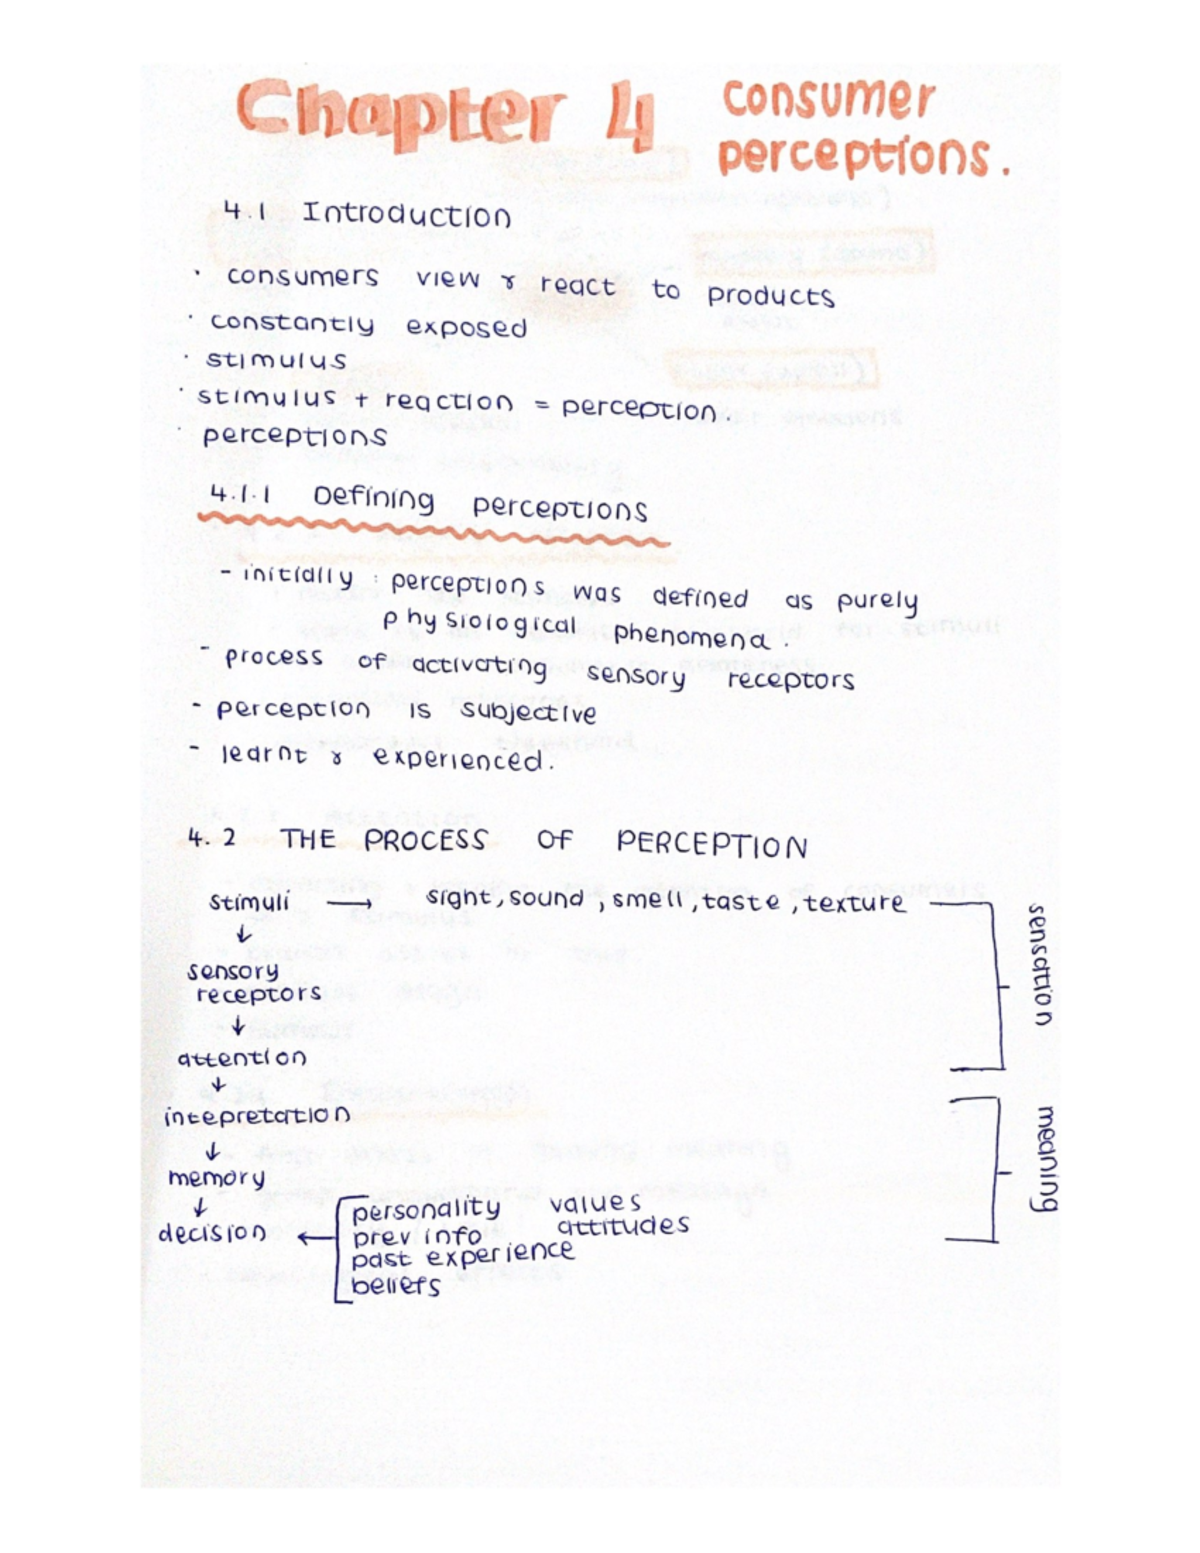 Chapter 4 consumer
perceptions.
4.1 Introduction
· consumers view & react to products
· constantly exposed
· stimulus
· stimulus + reaction = perception.
· perceptions
4.1.1 Defining perceptions
- initially : perceptions was defined as purely
physiological phenomena.
- process of activating sensory receptors
- perception is subjective
- learnt & experienced.
4.2 THE PROCESS OF PERCEPTION
stimuli → sight, sound, smell, taste, texture
↓
sensory
receptors
↓
attention
↓
intepretation
↓
memory
↓
decision ←
personality values
prev info attitudes
past experience
beliefs
sensation
meaning